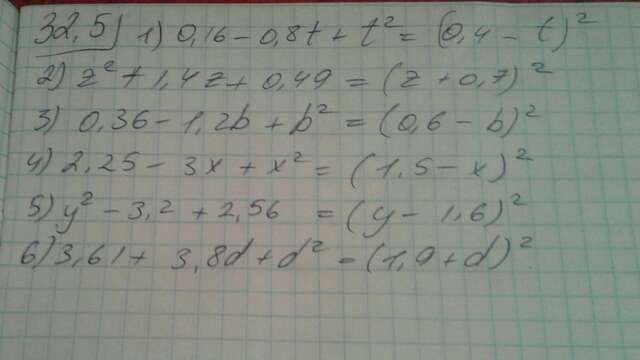 32,5) 1) 0,16 - 0,8t + t² = (0,4 - t)²
2) z² + 1,4z + 0,49 = (z + 0,7)²
3) 0,36 - 1,2b + b² = (0,6 - b)²
4) 2,25 - 3x + x² = (1,5 - x)²
5) y² - 3,2 + 2,56 = (y - 1,6)²
6) 3,61 + 3,8d + d² = (1,9 + d)²